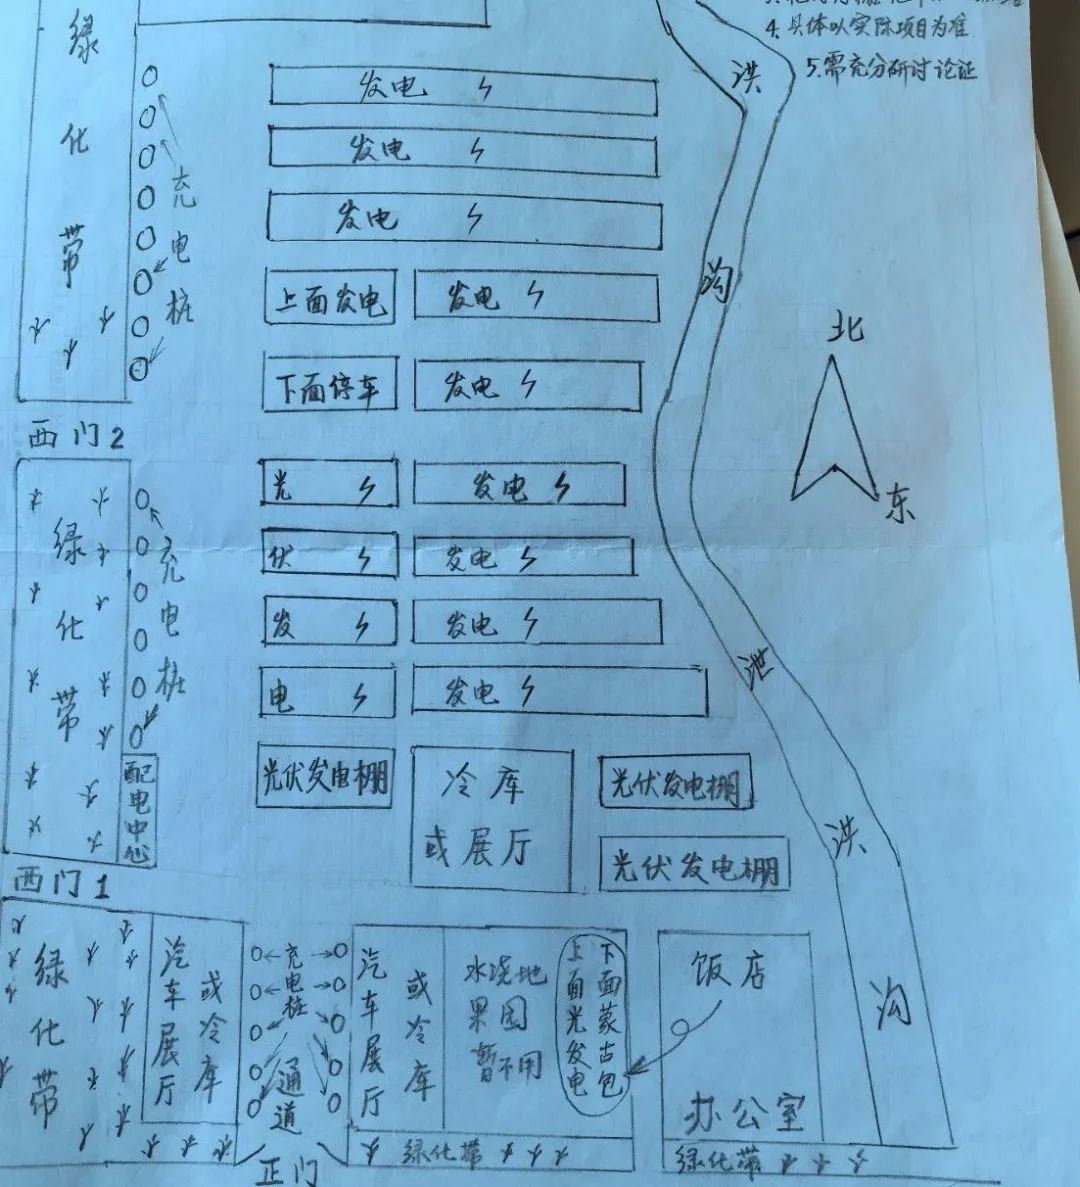 4.具体以实际项目为准
5.需充分研讨论证
绿化带
充电桩
发电
发电
发电
上面发电
发电
下面停车
发电
洪沟
北
东
西门2
绿化带
充电桩
配电中心
光
发电
伏
发电
发
发电
电
发电
泄洪沟
光伏发电棚
冷库
或展厅
光伏发电棚
光伏发电棚
西门1
绿化带
汽车展厅
或冷库
充电桩
通道
正门
汽车展厅
或冷库
水浇地
果园
暂不用
上面光发电
下面蒙古包
饭店
办公室
绿化带
绿化带